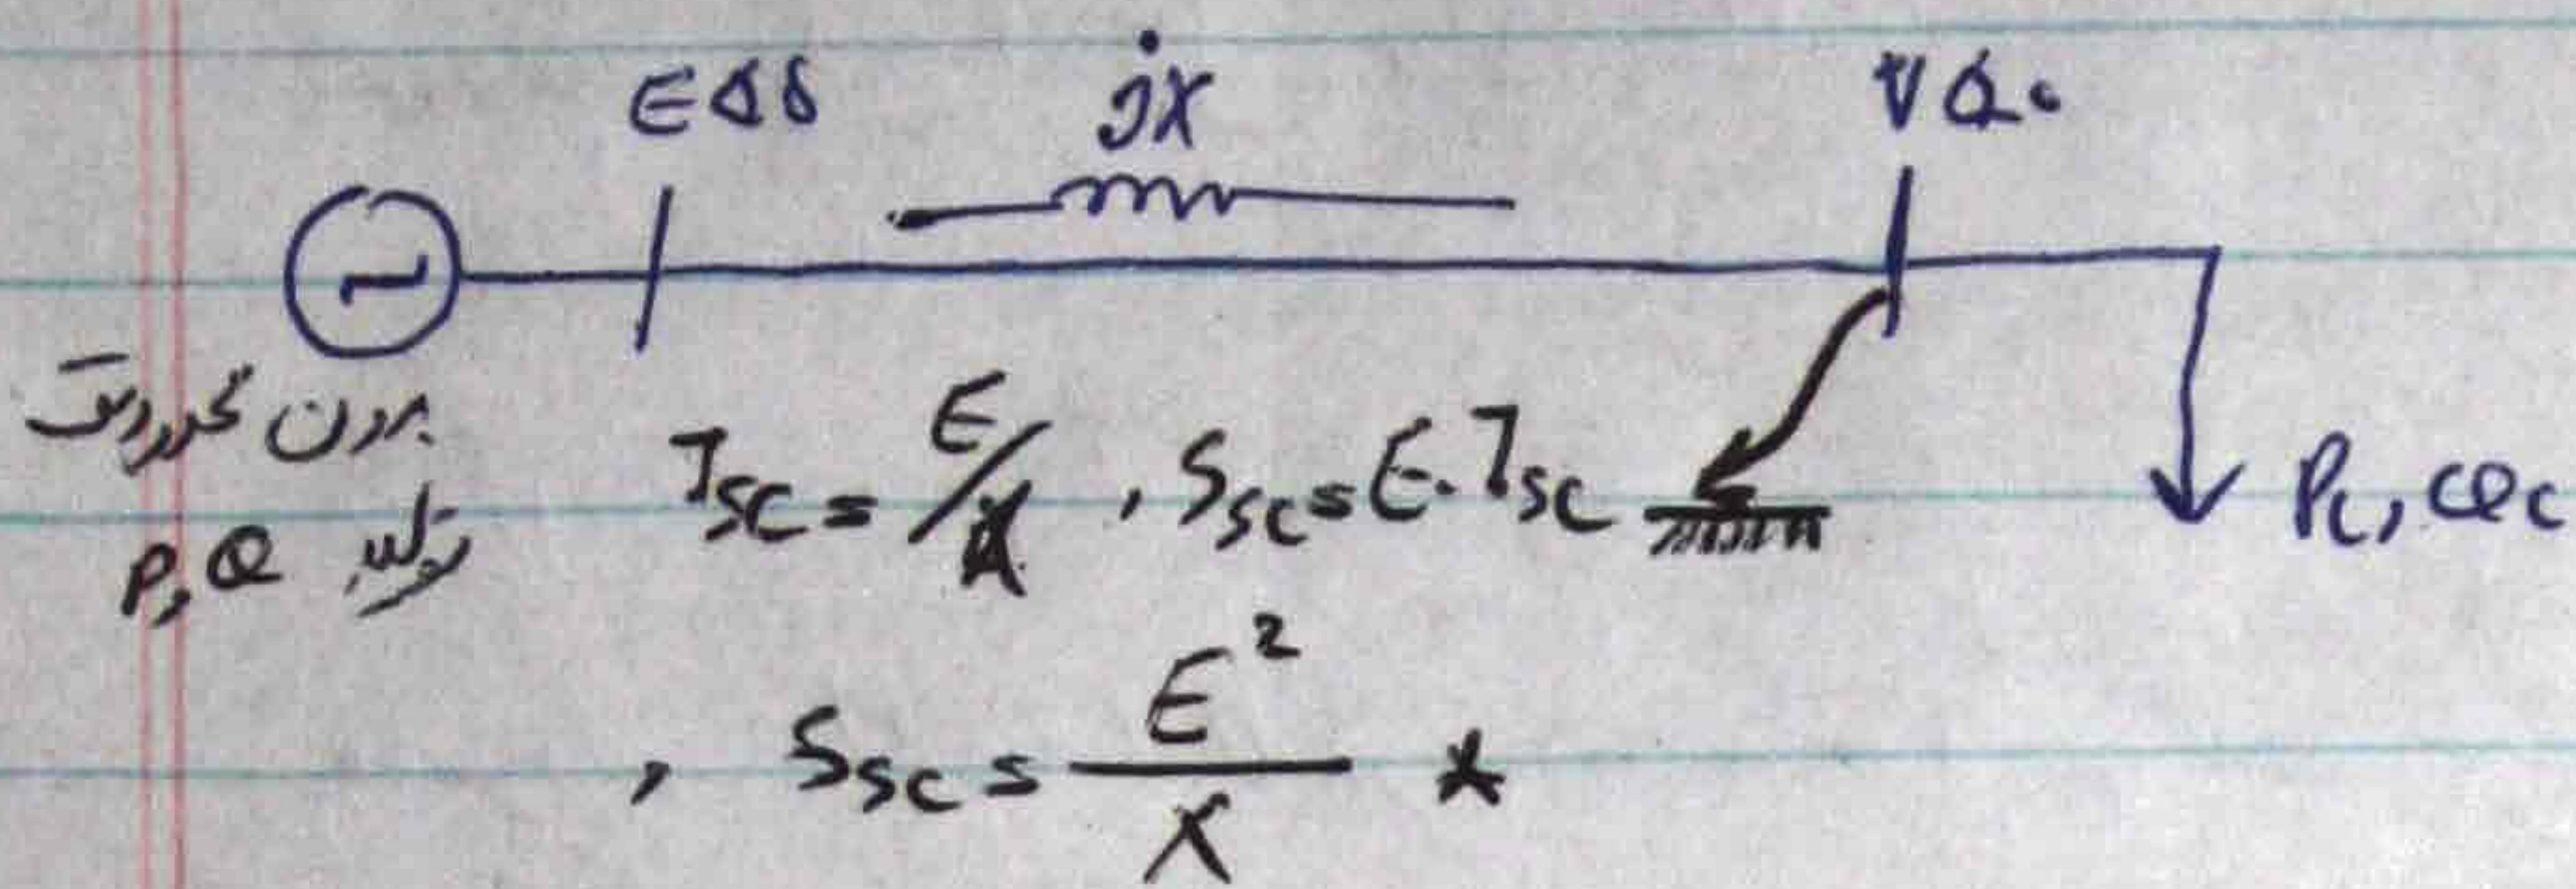 E∠δ jX V∠0
بدون محدودیت
تولید P,Q
I_SC = E/X , S_SC = E.I_SC
P_L, Q_L
, S_SC = E²/X *